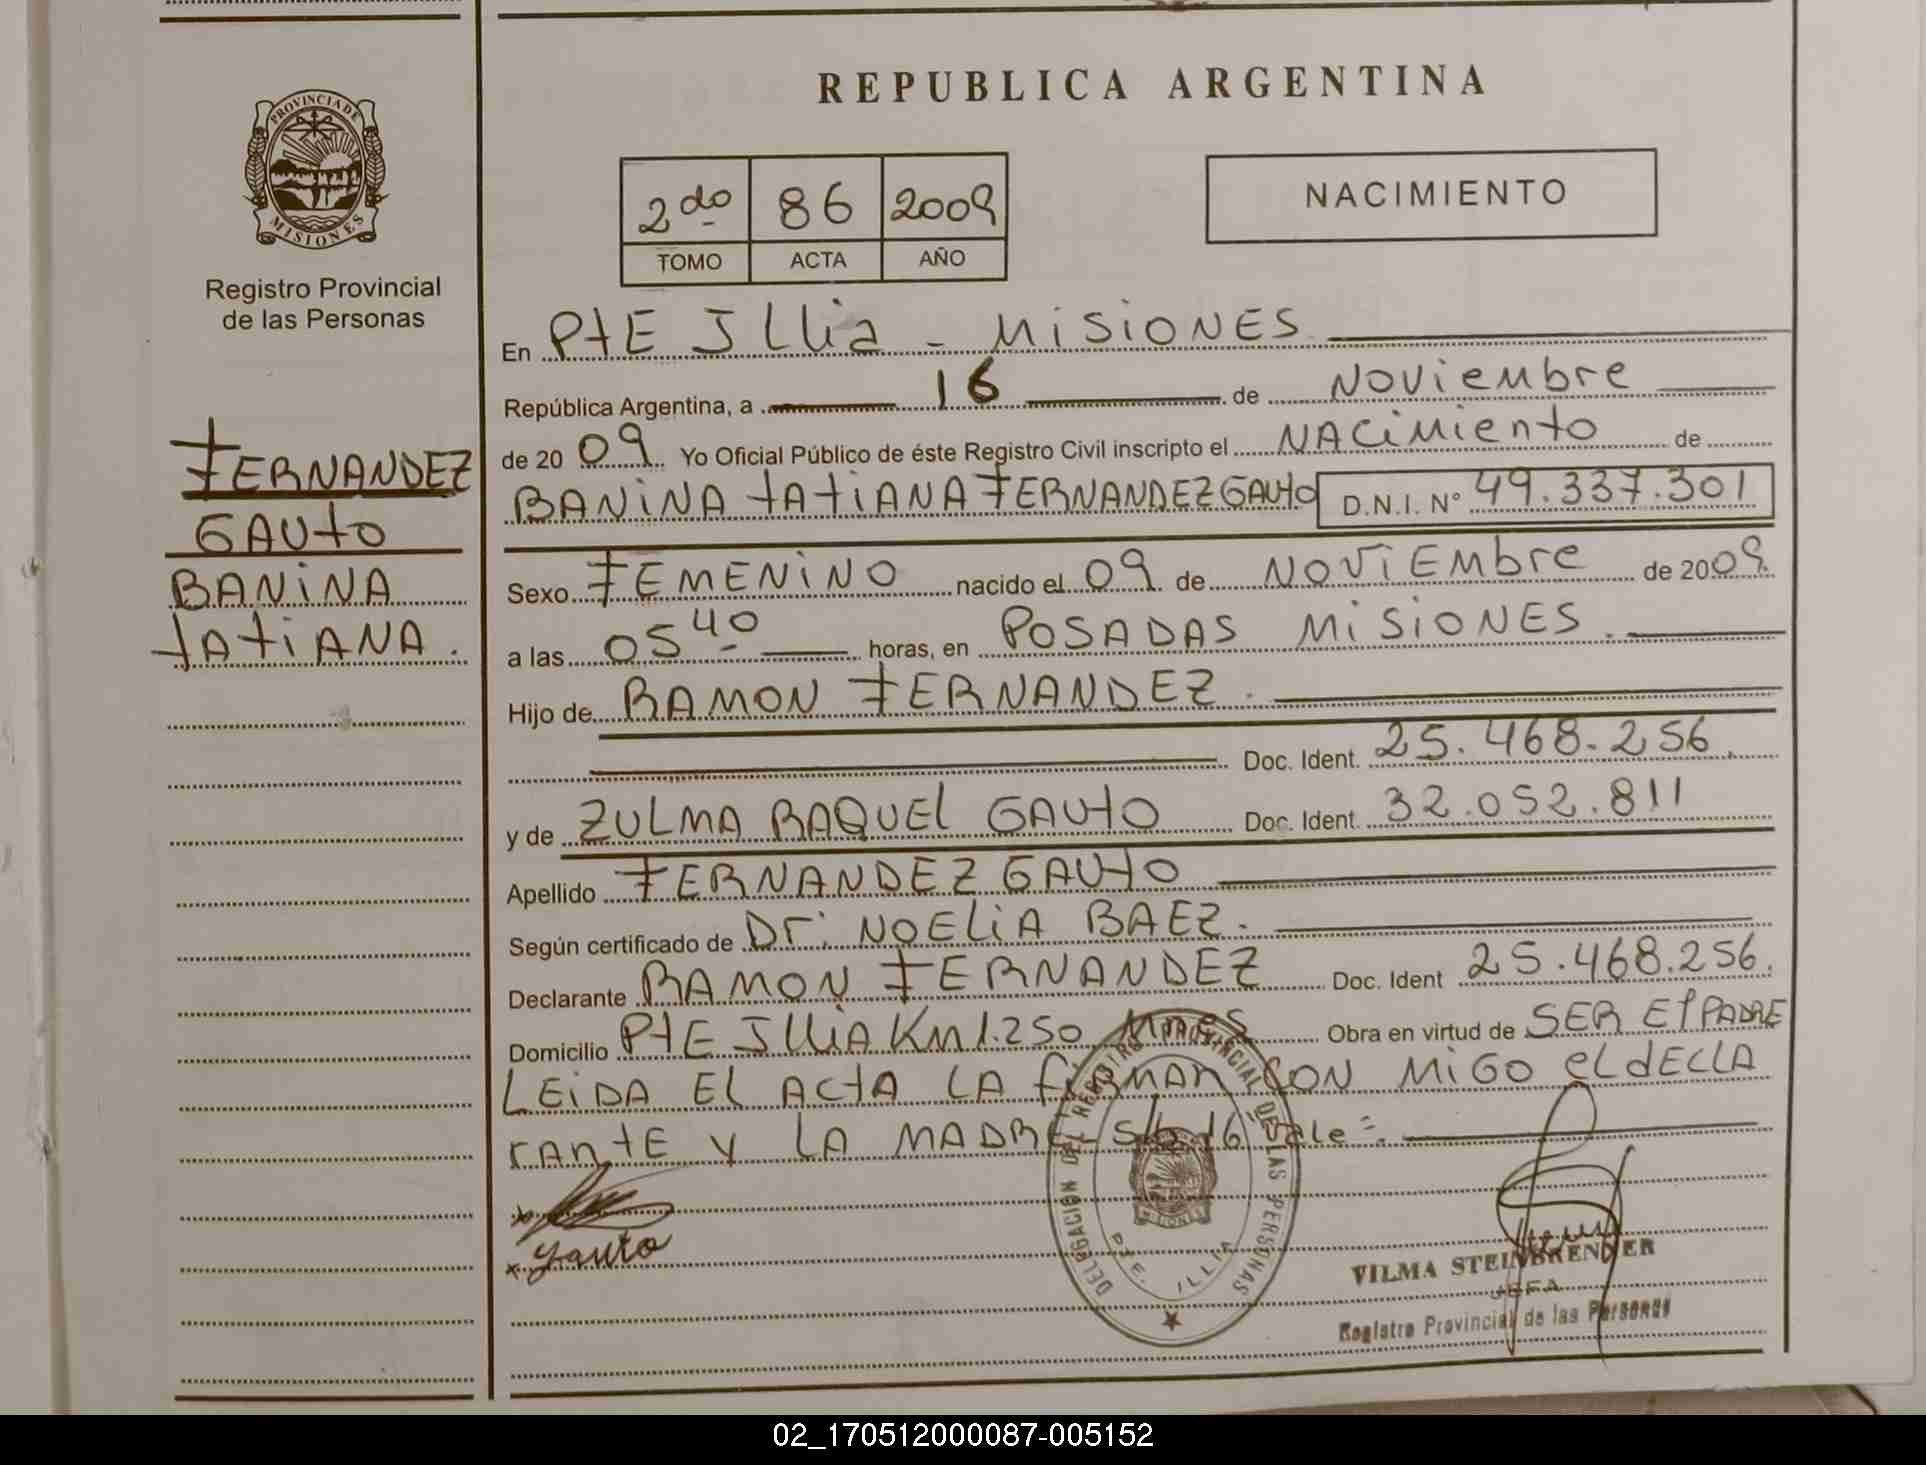 PROVINCIA DE
MISIONES
Registro Provincial
de las Personas
FERNANDEZ
GAUtO
BANiNA
tAtiANA.
REPUBLICA ARGENTINA
2do 86 2009
TOMO ACTA AÑO
NACIMIENTO
En PtE JLLia - MiSiONES
República Argentina, a 16 de Noviembre
de 2009 Yo Oficial Público de éste Registro Civil inscripto el NACiMiento de
BANiNA tAtiANA FERNANDEZ GAUtO D.N.I. Nº 49.337.301
Sexo FEMENiNO nacido el 09 de NOViEMbre de 2009.
a las 05 40 horas, en POSADAS MiSiONES.
Hijo de RAMON FERNANDEZ.
Doc. Ident. 25.468.256.
y de ZULMA RAQUEL GAUtO Doc. Ident. 32.052.811
Apellido FERNANDEZ GAUtO
Según certificado de Dr: NOELiA BAEZ.
Declarante RAMON FERNANDEZ Doc. Ident 25.468.256.
Domicilio PtE JLLiA Km 1.250 Mnes Obra en virtud de SER El PADRE
LEiDA EL ACtA LA firMAN CON MiGO eL dECLA
rAntE y LA MADRE S/b 16 Vale=.
Gauto
DELEGACION DEL REGISTRO PROVINCIAL DE LAS PERSONAS
PTE. ILLIA
MISIONES
VILMA STEINBRENNER
JEFA
Registro Provincial de las Personas
02_170512000087-005152